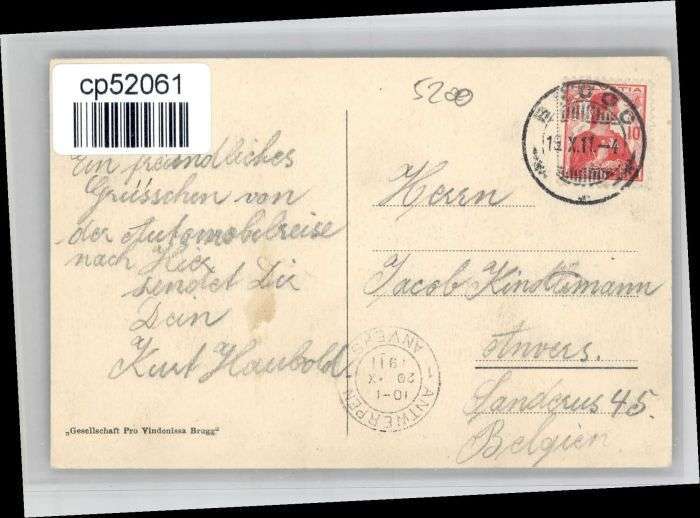 cp52061
5200
BRUGG
19.X.11.-4
HELVETIA
10
Ein freundliches
Grüsschen von
der Automobelreise
nach Hier
sendet Dir
Dein
Kurt Haubold
Herrn
Jacob
Anvers.
Sanderus 45.
Belgien
ANTWERPEN
10-1
20 X
1911
ANVERS
„Gesellschaft Pro Vindonissa Brugg“